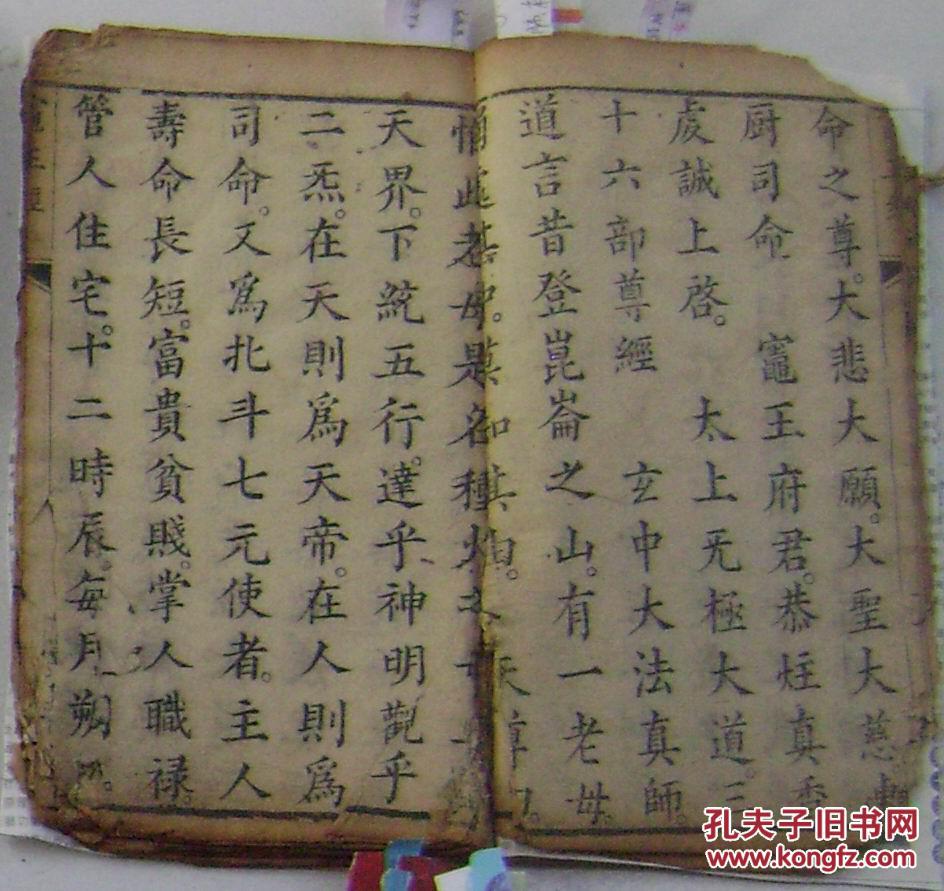 命之尊。大悲大願。大聖大慈。東
厨司命 竈王府君。恭炷真香
虔誠上啓。 太上旡極大道。三
十六部尊經 玄中大法真師。
道言昔登崑崙之山。有一老母。
此老母。是 種火之 天尊
天界。下統五行。達乎神明觀乎
二炁。在天則爲天帝。在人則爲
司命。又爲北斗七元使者。主人
壽命長短。富貴貧賤。掌人職禄。
管人住宅。十二時辰。每月朔
竈王經
孔夫子旧书网
www.kongfz.com